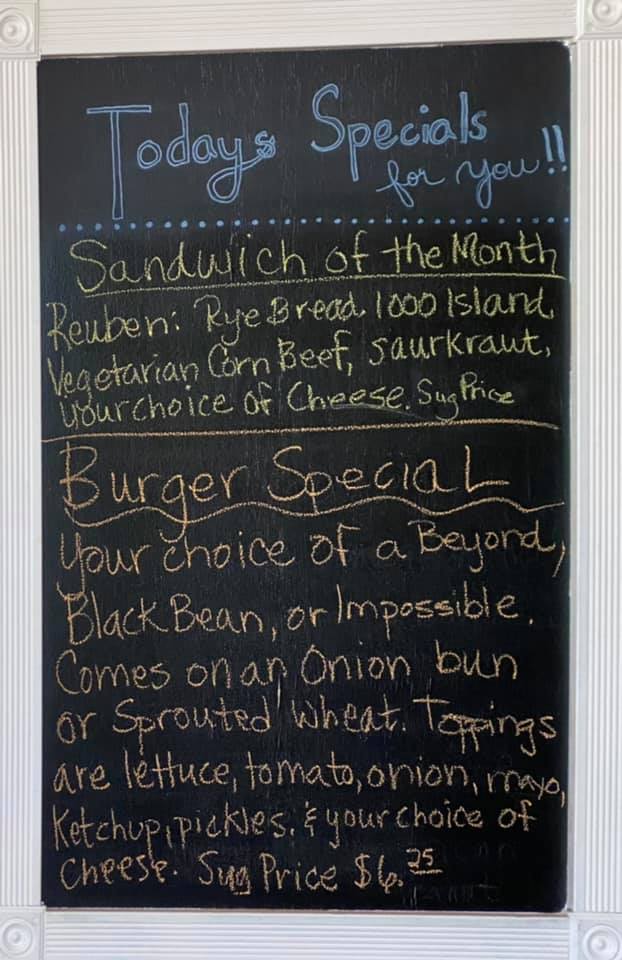 Todays Specials
for you!!
Sandwich of the Month
Reuben: Rye Bread, 1000 Island,
Vegetarian Corn Beef, Saurkraut,
your choice of Cheese. Sug Price
Burger Special
Your choice of a Beyond,
Black Bean, or Impossible.
Comes on an Onion bun
or Sprouted Wheat. Toppings
are lettuce, tomato, onion, mayo,
Ketchup, pickles, & your choice of
Cheese. Sug Price $6.25